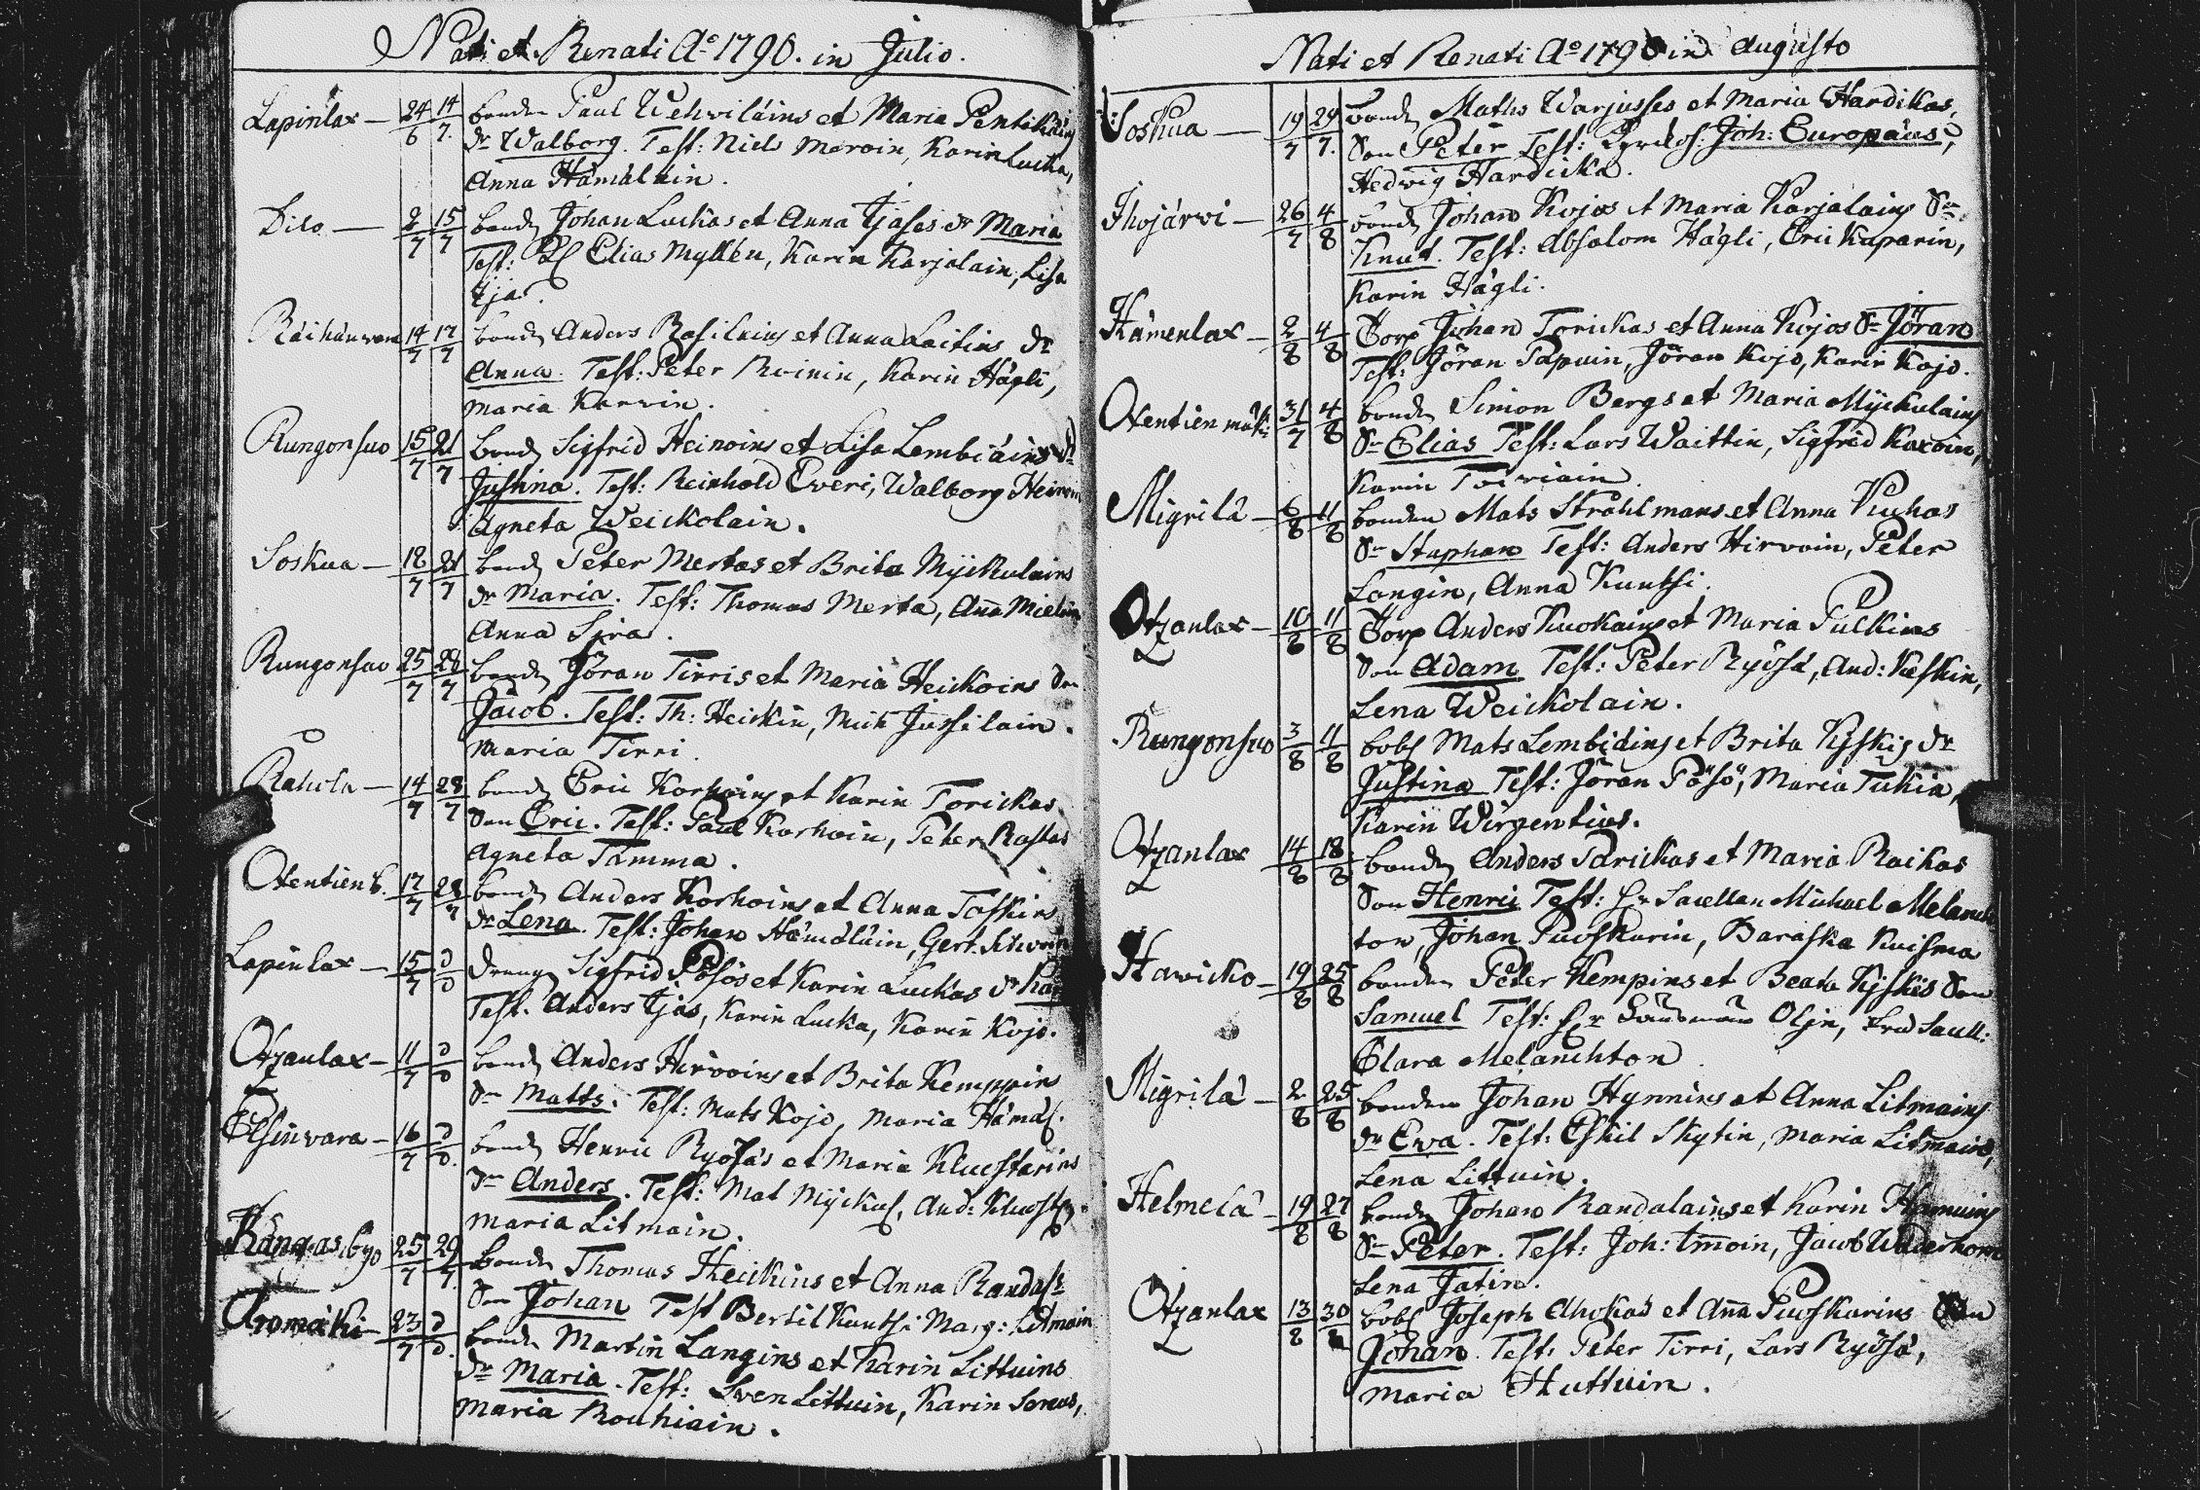 Nati et Renati Aº 1790. in Julio.
Lapinlax — 24/6 14/7. bonden Paul Wehviläins et Maria Pentikäins
dr Walborg. Test: Niels Maroin, Karin Lucka,
Anna Hämäläin.
Dito — 2/7 15/7 bonden Johan Luckas et Anna Tjases dr Maria
Test: Elias Myllén, Karin Karjalain, Lisa
Tja.
Räihänwara 14/7 17/7 bonden Anders Rasilains et Anna Laitins dr
Anna. Test: Peter Roinin, Karin Hägli,
Maria Karvin.
Rungonsuo 15/7 21/7 bonden Sigfrid Heinoins et Lisa Lembiäins dr
Justina. Test: Reinhold Everi, Walborg Heinoin
Agneta Weickolain.
Soskua — 18/7 21/7 bonden Peter Mertas et Brita Myickulains
dr Maria. Test: Thomas Merta, Aña Mieloin
Anna Sira.
Rungonsuo 25/7 28/7 bonden Jöran Tirris et Maria Heickoins Son
Jacob. Test: Th: Heickin, Mich Jussilain.
Maria Tirri.
Rahula — 14/7 28/7 bonden Eric Korhoins et Karin Torickas
Son Eric. Test: Paul Korhoin, Peter Rastas
Agneta Tamma.
Otentien b. 17/7 28/7 bonden Anders Korhoins et Anna Taskins
dr Lena. Test: Johan Hämäläin, Gert.
Lapinlax — 15/7 d/o dräng Sigfrid Pösös et Karin Luckas dr
Test. Anders Tjas, Karin Lucka, Karin Kojo.
Otzanlax — 11/7 d/o bonden Anders Hirvoins et Brita Kemppins
Sn Matts. Test: Mats Kojo, Maria Hämäl.
Elsinvara — 16/7 d/o. bonden Henric Ryösäs et Maria Kluostarins
Sn Anders. Test: Mat Myckul, And: Kluost.
Maria Litmain.
Kangasbyo 25/7 29/7. bonden Thomas Heickins et Anna Randals
Son Johan Test Bertil Kuntsi Marg: Litmain
Aromäki — 23/7 d/o. bonden Martin Langins et Karin Littuins
dr Maria. Test: Sven Littuin, Karin Sorvas,
Maria Rouhiain.
Nati et Renati Aº 1790 in Augusto
Soskua — 19/7 29/7. bonden Maths Warjusses et Maria Hardikas,
Son Peter Test: Joh: Europæus,
Hedwig Hardicka.
Ihojärwi — 26/7 4/8 bonden Johan Kojos et Maria Karjalains Sn
Knut. Test: Absalom Hägli, Eric Kaparin,
Karin Hägli.
Hämenlax — 2/8 4/8 Torp Johan Torickas et Anna Kojos Sn Jöran
Test: Jöran Papuin, Jöran Kojo, Karin Kojo.
Otentien mäki 31/7 4/8 bonden Simon Bergs et Maria Myickulains
Sn Elias Test: Lars Waittin, Sigfrid Karoin,
Karin Toiviain.
Migrilä — 6/8 11/8 bonden Mats Stråhlmans et Anna Kuhas
Sn Staphan Test: Anders Hirvoin, Peter
Langin, Anna Kuntsi.
Otzanlax — 10/8 11/8 Torp Anders Kuokains et Maria Pulkins
Son Adam Test: Peter Ryösä, And: Kæskin,
Lena Weickolain.
Rungonsuo 3/8 11/8 bobl Mats Lembiäins et Brita Kyskis dr
Justina Test: Jöran Pösö, Maria Tukia,
Karin Wirgentius.
Otzanlax 14/8 18/8 bonden Anders Parickas et Maria Raikas
Son Henric Test: Hr Sacellan Michael Melanch
ton, Johan Puoskarin, Baraska Kuisma
Hawicko — 19/8 25/8 bonden Peter Kempins et Beata Kyskis Son
Samuel Test: Hr Länsman Olin, Fru Sacell:
Clara Melanchton
Migrilä — 2/8 25/8 bonden Johan Hynnins et Anna Litmains
dr Eva. Test: Eskil Skytin, Maria Litmain,
Lena Littuin.
Helmelä — 19/8 27/8 bonden Johan Randalains et Karin Hämuins
Sn Peter. Test: Joh: Im̃oin, Jacob
Lena Jatin.
Otzanlax 13/8 30/8 bobl Joseph Ahokas et Aña Puoskarins Son
Johan. Test: Peter Tirri, Lars Ryösä,
Maria Huttuin.